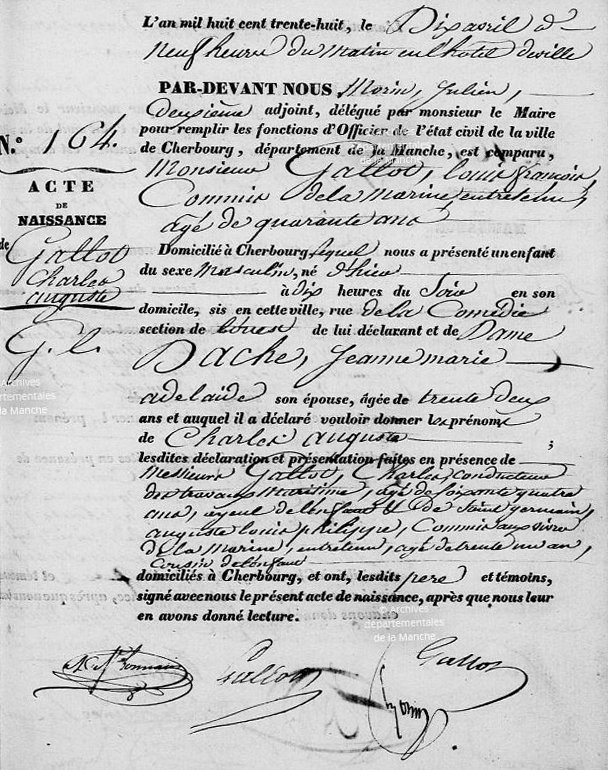 L'an mil huit cent trente-huit, le Dix avril à
neuf heures du matin en l'hotel deville
PAR-DEVANT NOUS Morin, Julien,
Deuxième adjoint, délégué par monsieur le Maire
pour remplir les fonctions d'Officier de l'état civil de la ville
de Cherbourg, département de la Manche, est comparu,
N.° 164.
Monsieur Gallot, louis françois,
Commis de la marine, entretenu,
agé de quarante ans
ACTE
DE
NAISSANCE
de Gallot
Charles
auguste
G. l.
Domicilié à Cherbourg lequel nous a présenté un enfant
du sexe masculin, né d'hier
à dix heures du Soir en son
domicile, sis en cette ville, rue de la Comédie
section de l'ouest de lui déclarant et de Dame
Dache, Jeanne marie
adelaïde son épouse, âgée de trente deux
ans et auquel il a déclaré vouloir donner les prénoms
de Charles auguste ;
lesdites déclaration et présentation faites en présence de
Messieurs Gallot, Charles, conducteur
des travaux Maritime, agé de soixante quatre
ans, ayeul de l'enfant & de Saint germain,
auguste louis philippe, Commis aux vivres
de la Marine, entretenu, agé de trente un an,
cousin de l'enfant
domiciliés à Cherbourg, et ont, lesdits pere et témoins,
signé avec nous le présent acte de naissance, après que nous leur
en avons donné lecture.
Gallot
Gallot
© Archives
départementales
de la Manche